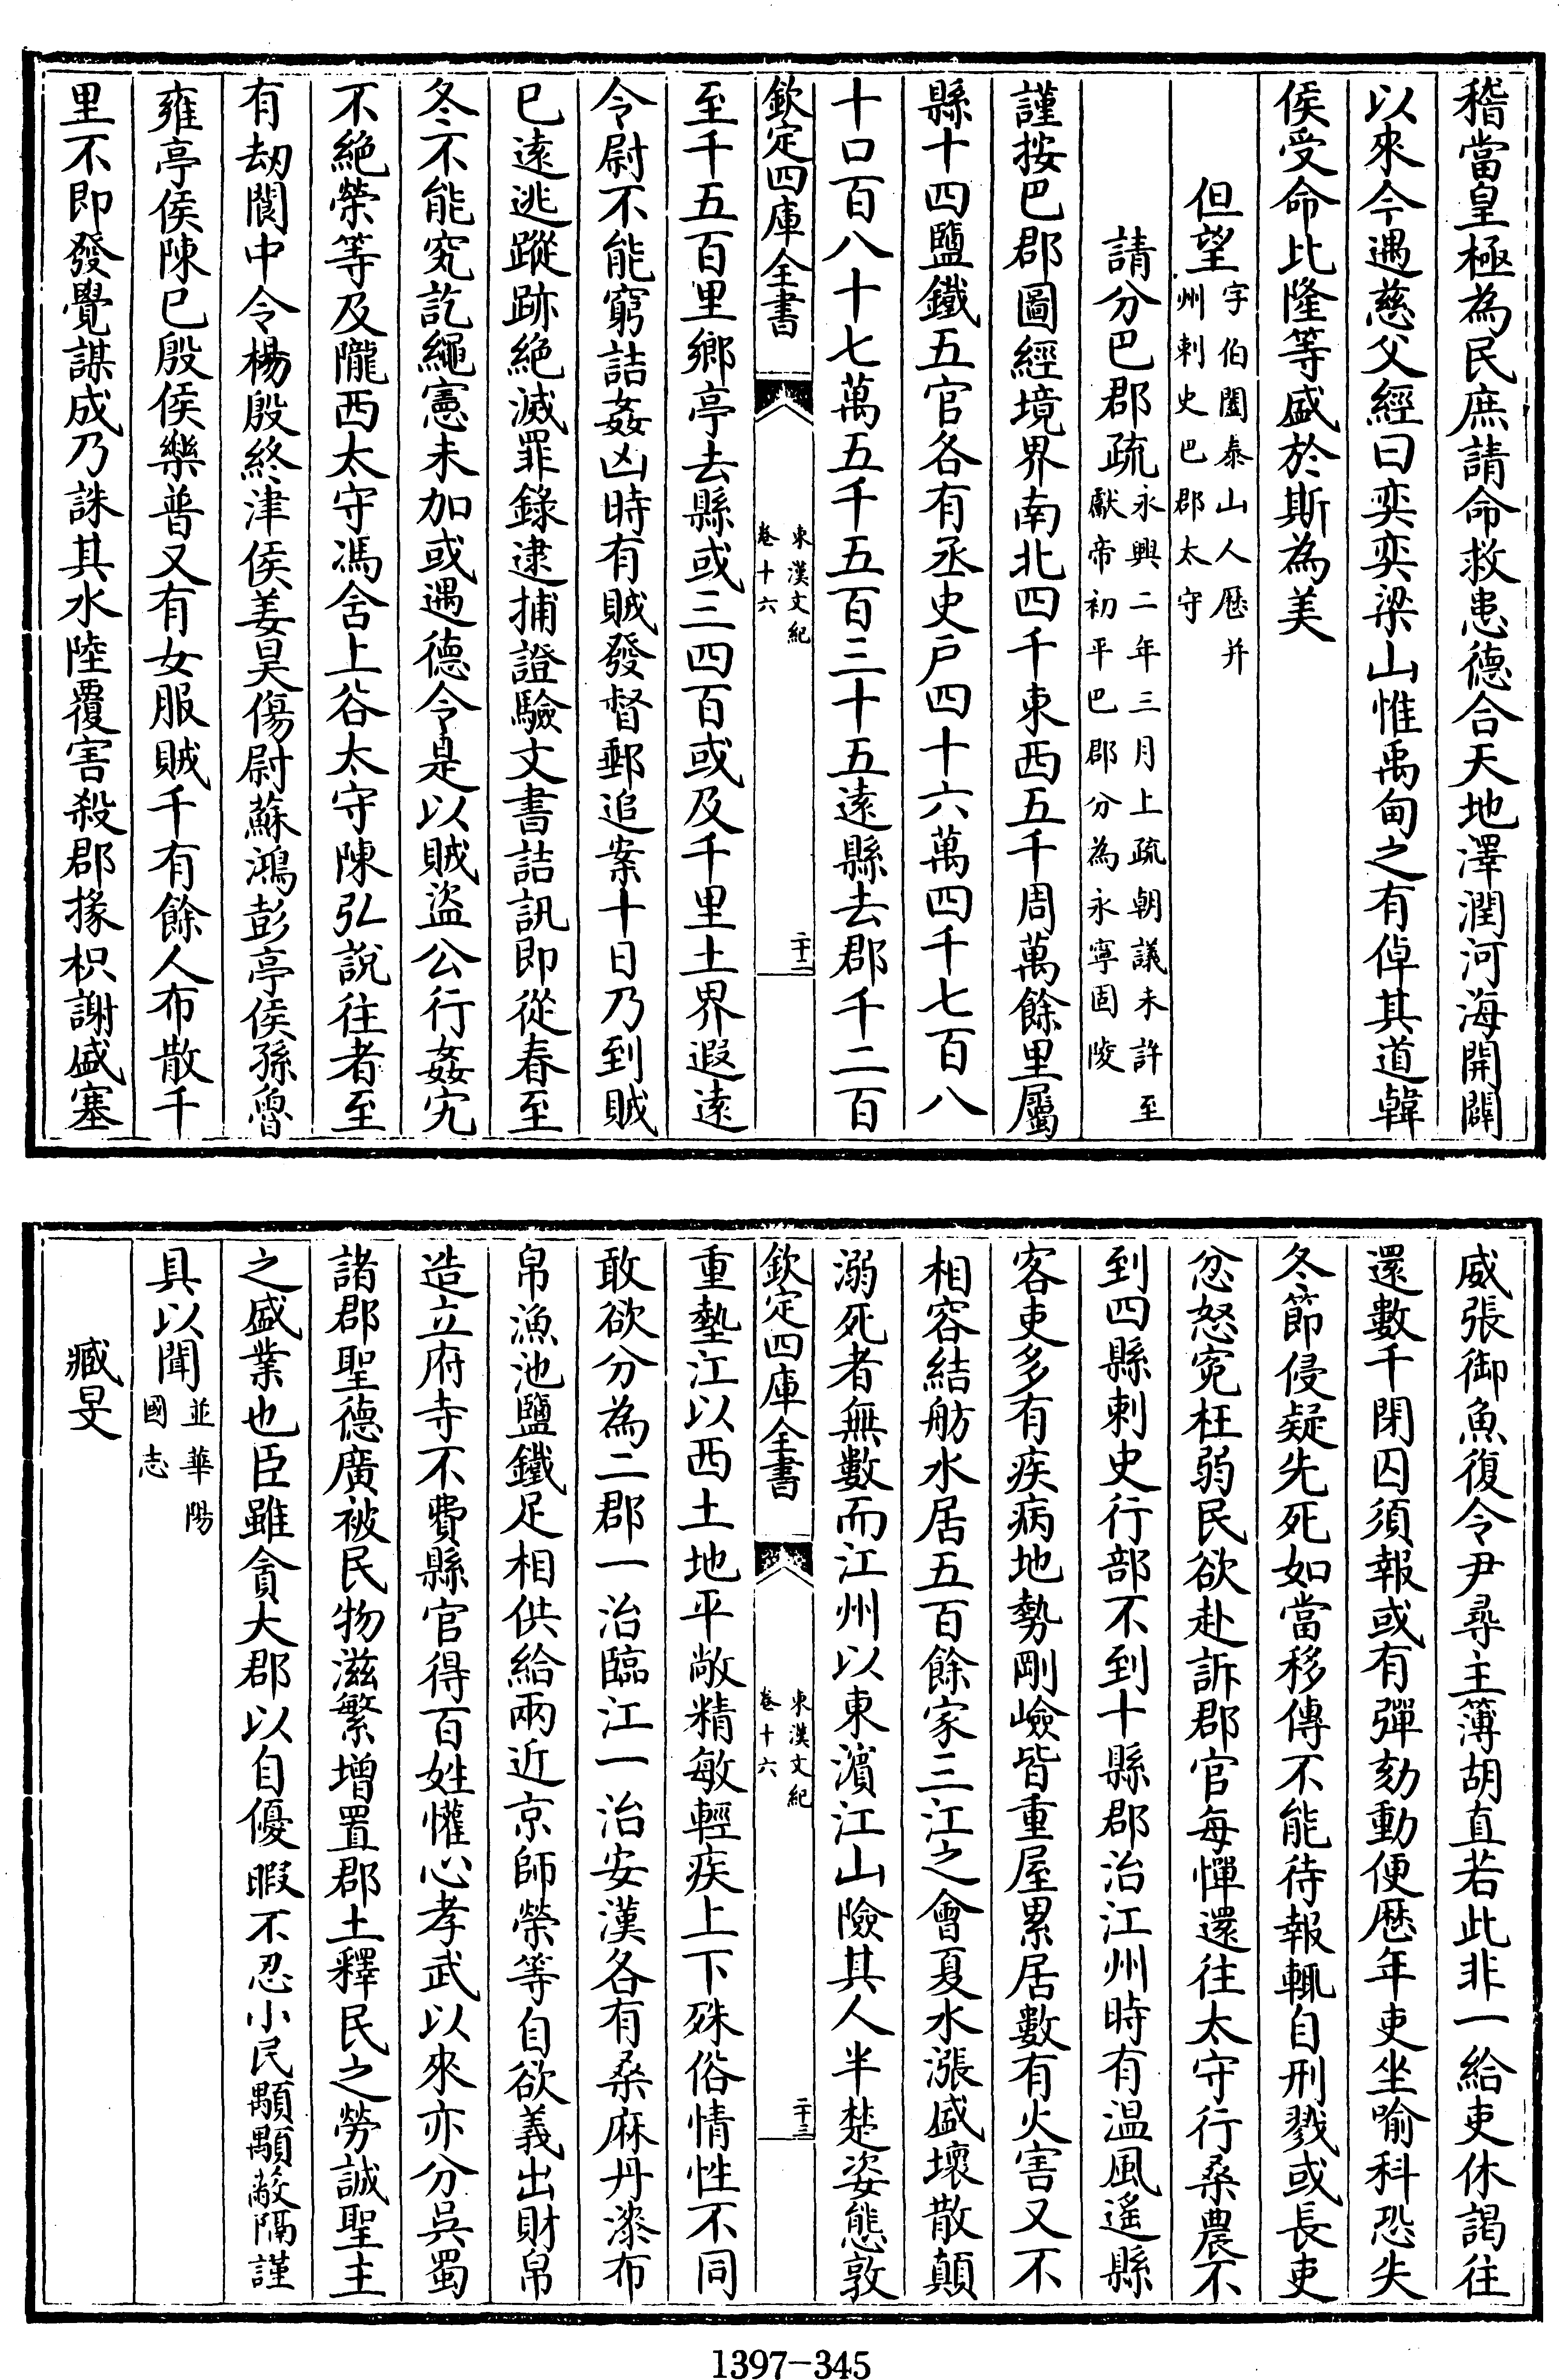 稽當皇極為民庶請命救患德合天地澤潤河海開闢
以來今遇慈父經曰奕奕梁山惟禹甸之有倬其道韓
侯受命比隆等盛於斯為美
但望字伯闔泰山人厯并州刺史巴郡太守
請分巴郡疏永興二年三月上疏朝議未許至獻帝初平巴郡分為永寧固陵
謹按巴郡圖經境界南北四千東西五千周萬餘里屬
縣十四鹽鐵五官各有丞史户四十六萬四千七百八
十口百八十七萬五千五百三十五遠縣去郡千二百
欽定四庫全書
東漢文紀
卷十六
二十二
至千五百里鄉亭去縣或三四百或及千里土界遐遠
令尉不能窮詰姦凶時有賊發督郵追案十日乃到賊
已遠逃蹤跡絶滅罪錄逮捕證驗文書詰訊即從春至
冬不能究訖繩憲未加或遇德令是以賊盜公行姦宄
不絶榮等及隴西太守馮含上谷太守陳弘說往者至
有劫閬中令楊殷終津侯姜昊傷尉蘇鴻彭亭侯孫魯
雍亭侯陳巳殷侯樂普又有女服賊千有餘人布散千
里不即發覺謀成乃誅其水陸覆害殺郡掾枳謝盛塞
威張御魚復令尹尋主簿胡直若此非一給吏休謁往
還數千閉囚須報或有彈劾動便厯年吏坐喻科恐失
冬節侵疑先死如當移傳不能待報輒自刑戮或長吏
忿怒寃枉弱民欲赴訴郡官每憚還往太守行桑農不
到四縣刺史行部不到十縣郡治江州時有温風遥縣
客吏多有疾病地勢剛嶮皆重屋累居數有火害又不
相容結舫水居五百餘家三江之會夏水漲盛壞散顛
溺死者無數而江州以東濵江山險其人半楚姿態敦
欽定四庫全書
東漢文紀
卷十六
二十三
重墊江以西土地平敞精敏輕疾上下殊俗情性不同
敢欲分為二郡一治臨江一治安漢各有桑麻丹漆布
帛漁池鹽鐵足相供給兩近京師榮等自欲義出財帛
造立府寺不費縣官得百姓懽心孝武以來亦分吳蜀
諸郡聖德廣被民物滋繁增置郡土釋民之勞誠聖主
之盛業也臣雖貪大郡以自優暇不忍小民顒顒蔽隔謹
具以聞並華陽國志
臧旻
1397-345